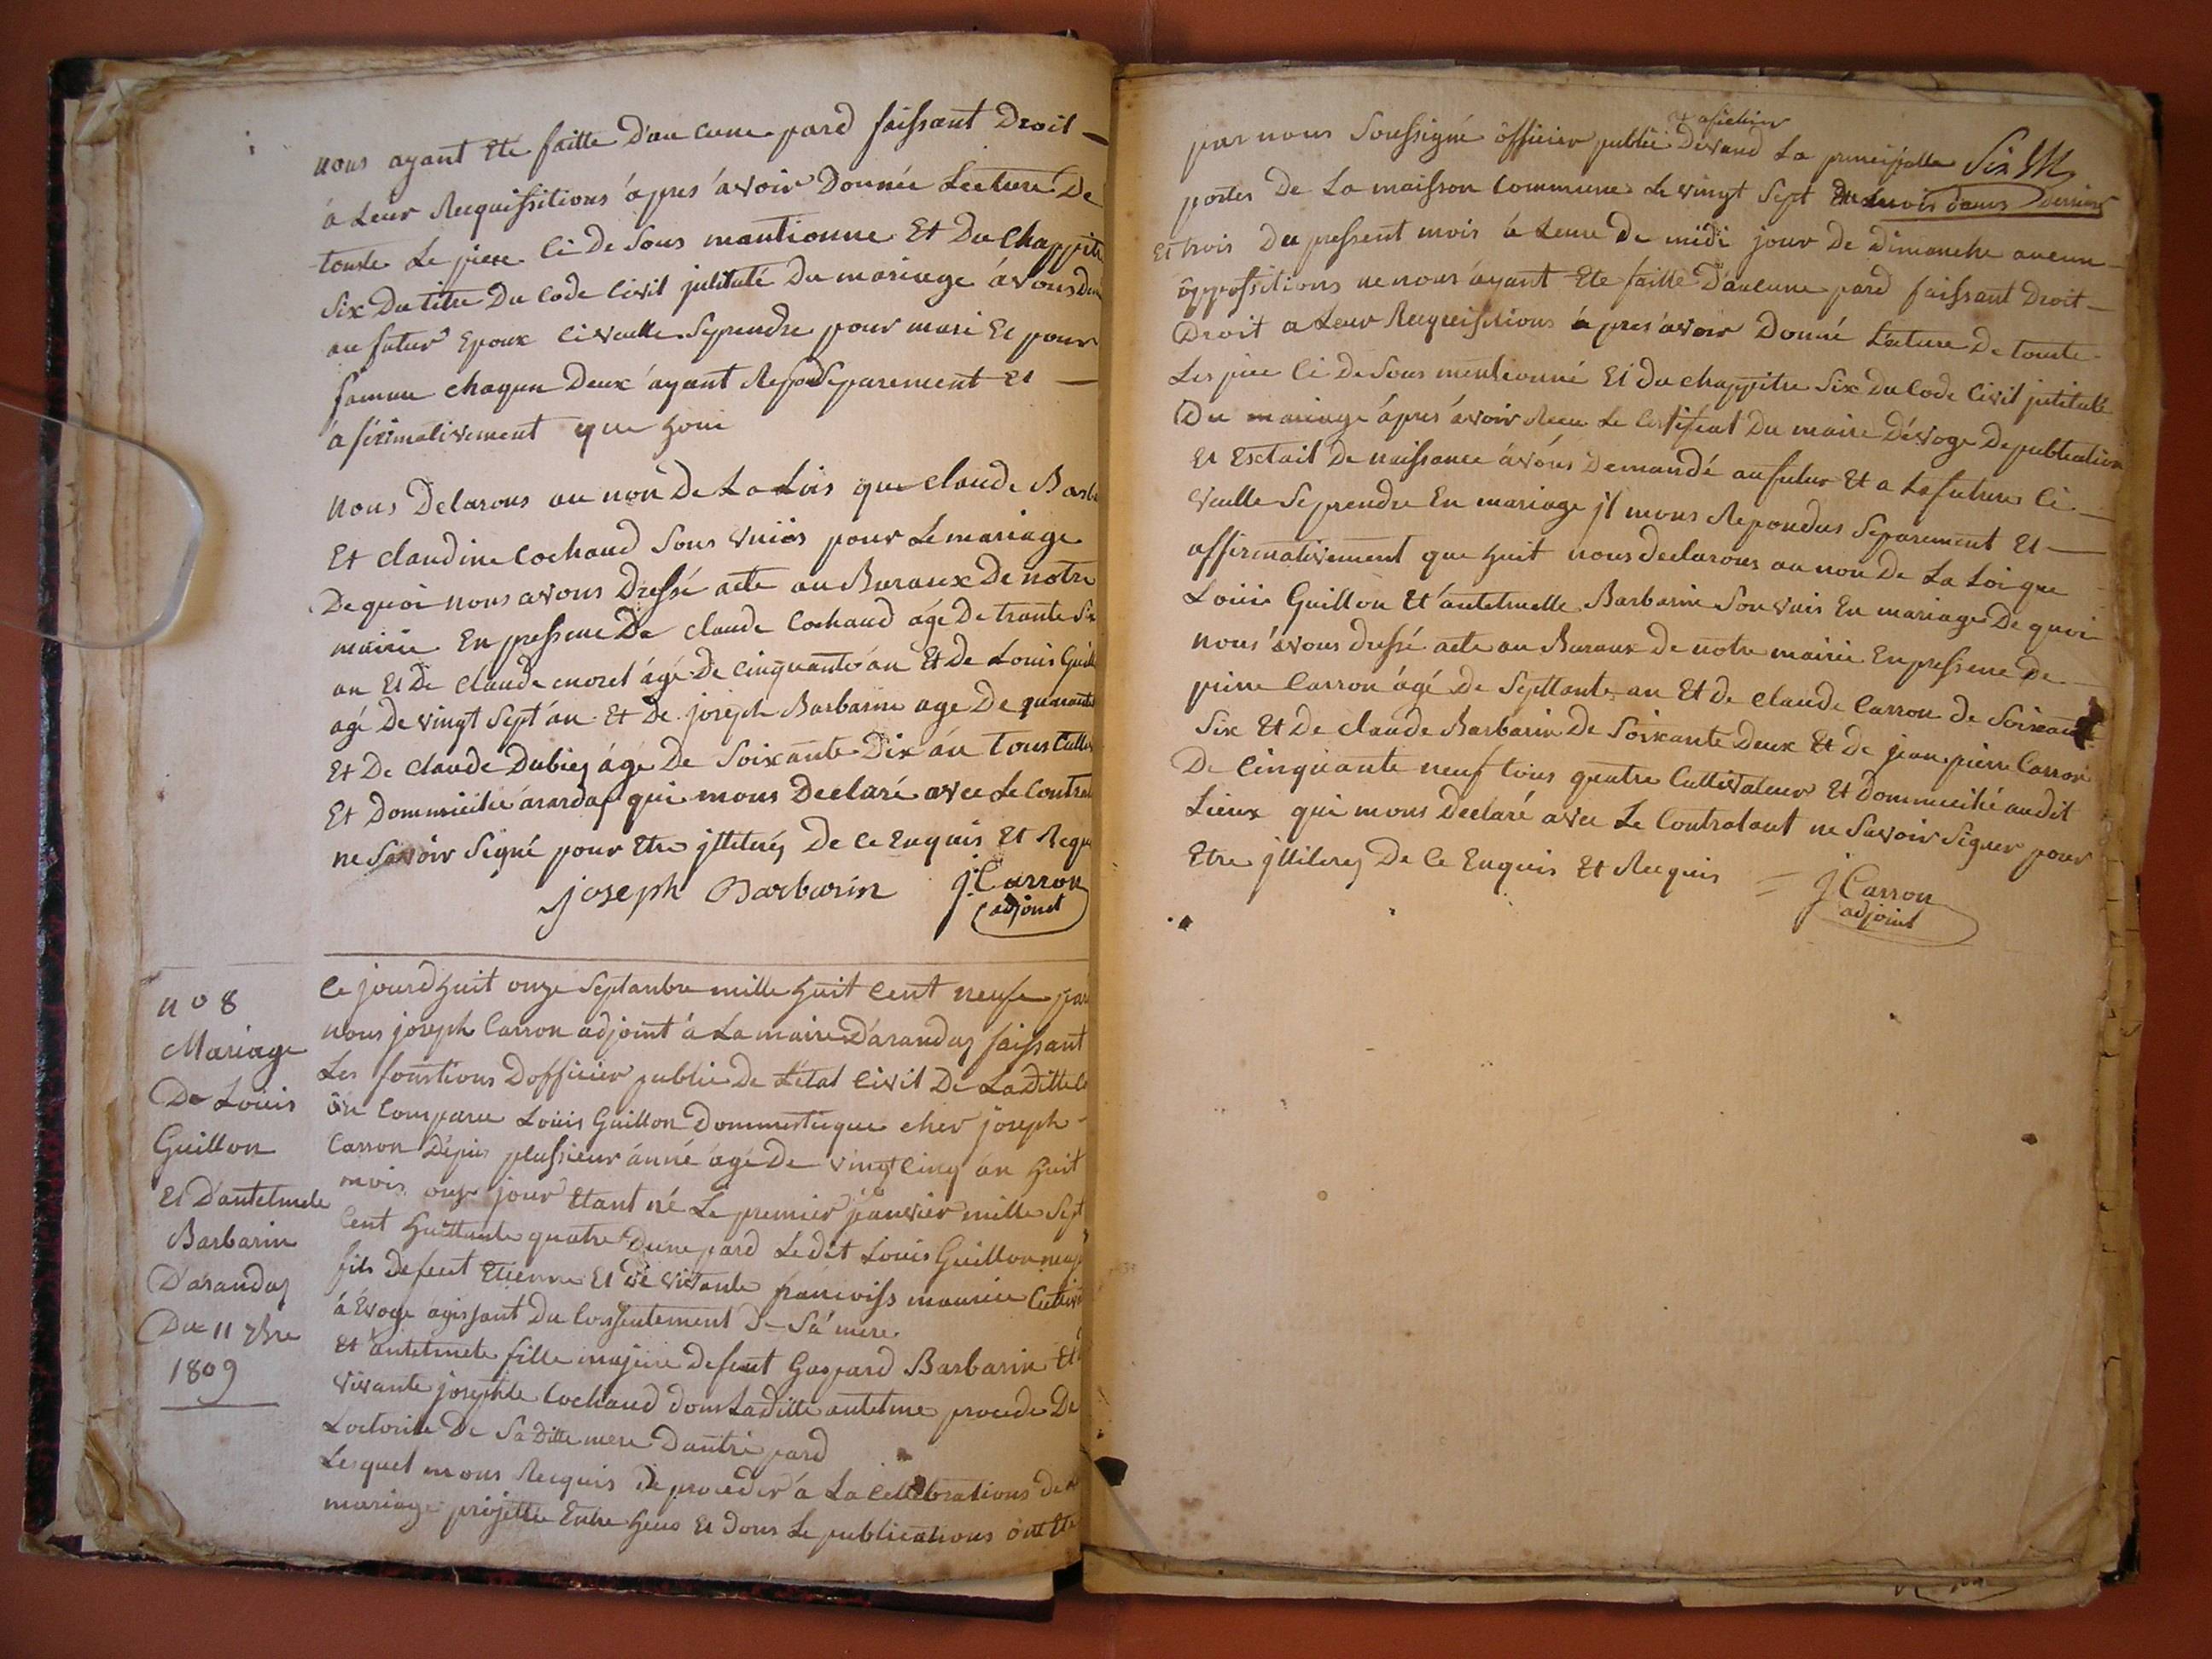 nous ayant Ete faitte D'au cune pard faissant Droit
à Leur Requissitions àpres àvoir Donnée Lecture De
toutte Le piece Ci De Sous mantionne Et Du Chappitre
Six Du titre Du Code Civil jntitulé Du mariage àvons
au futur Epoux Ci veulle Seprendre pour mari Et pour
famme chaqun Deux ayant Separement Et
àfirmativement que houi
nous Delarons au non De La Lois que claude
Et claudine Cochaud Sons vniés pour Le mariage
De quoi nous avons Dressé acte au Buraux De notre
mairie En pressene De claude Cochaud agé De trante
an Et De Claude morel àgé De Cinquante àn Et De Louis
agé De vingt Sept àn Et De joseph Barbarin age De quarante
Et De claude Dubiez àgé De Soixante Dix àn Tous
Et Dommicilie àrandaz qui mons Declaré avec Le
ne Savoir Signé pour Etre jlleterés De Ce Enquis Et
joseph Barbarin J. Carron
adjoint
n° 8
Mariage
De Louis
Guillon
Et D'antelmele
Barbarin
D'arandaz
Du 11 7bre
1809
Ce jourdhuit onze Septanbre mille huit Cent neufe
nous joseph Carron adjoint à La maire D'arandaz faissant
Les fonstions Dofficier public De L'état Civil De Laditte
òn Comparu Louis Guillon Dommestuque cher joseph
Carron Depuis plussieur ànné àgé De vingt Cinq àn huit
mois onze jour Etant né Le premier jeanvier mille Sept
Cent huittante quatre D'une pard Ledit Louis Guillon
fils defeut Etienne Et De vivante francoiss maurice
à Evoge agissant Du Consentement De Sa mere
Et antelmele fille majeure defeut Gaspard Barbarin Et
vivante josephte Cochaud dons Laditte antelme procede De
Lotorité De Saditte mere Dautre pard
Lesquel mons Requis De proceder à La Cellebrations de
mariage projettée Entre heux Et dons Le publications ònt Ete
par nous Soussigné òfficier public Devand La principalle
portes De La maisson Commune Le vingt Sept
Et trois Du pressent mois à Leure De midi jour De Dimanche aucune
òppossitions ne nous ayant Ete faitte D'aucune pard faissant Droit
Droit a Leur Requissitions àpres avoir Donné Lecture De toutte
Les piece Ci De Sous mentionné Et du chappitre Six Du Code Civil jntitulé
Du mariage àpres àvoir Recu Le Certificat Du maire D'évoge De publication
Et Exctait De naissance àvons Demandé au futur Et a La future Ci
veulle Seprendre En mariage jl mons Repondus Separement Et
affirmativement que huit nous declarons au non De La Loi que
Louis Guillon Et antelmelle Barbarin Son vnis En mariage De quoi
nous àvons dressé acte au Buraux de notre mairie En pressene De
piere Carron àgé De Septtante an Et de claude Carron de Soixante
Six Et De claude Barbarin De Soixante Deux Et De jean pierre Carron
De Cinquante neuf tous quatre Cultivateur Et Dommicilié audit
Lieux qui mons Declaré avec Le Contratant ne Savoir Signer pour
Etre jlliterez De Ce Enquis Et Requis J. Carron
adjoint